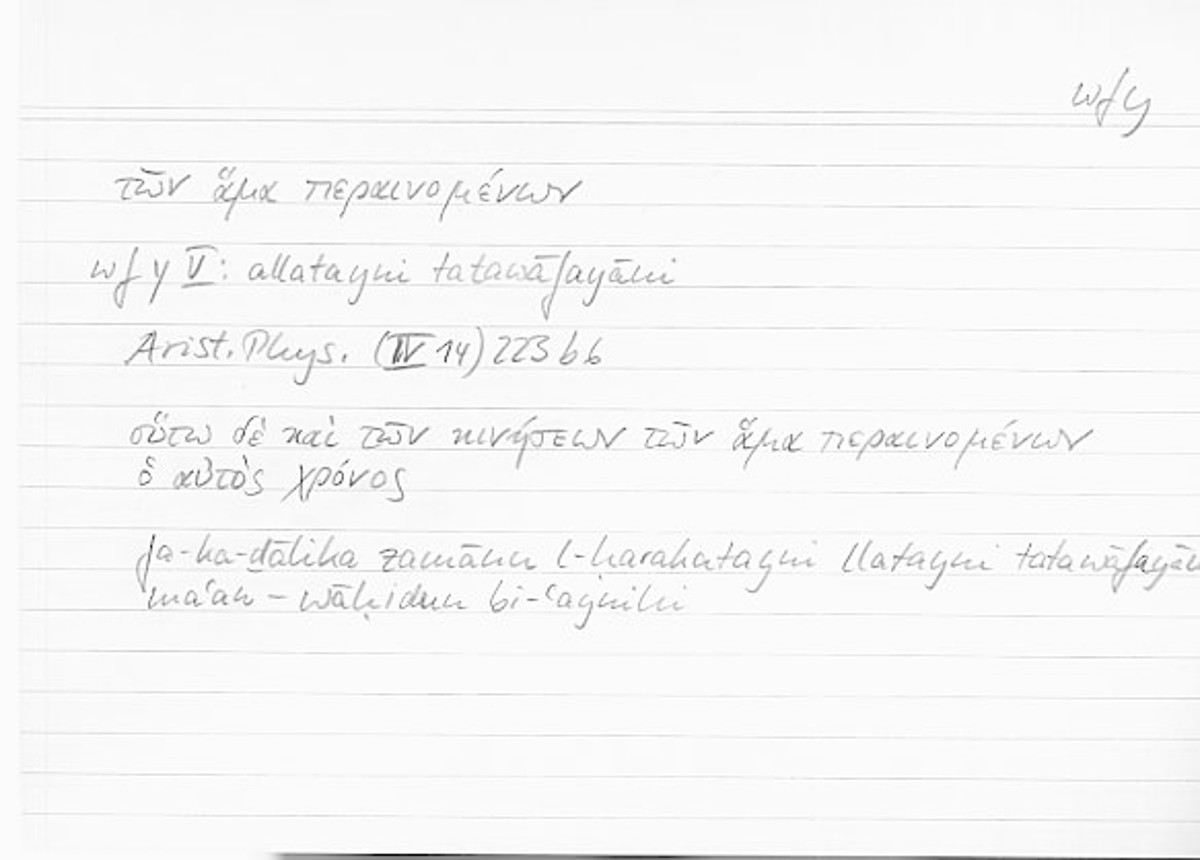 wfy
τῶν ἅμα περαινομένων
wfy V: allatayni tatawāfayāni
Arist. Phys. (IV 14) 223 b 6
οὕτω δὲ καὶ τῶν κινήσεων τῶν ἅμα περαινομένων
ὁ αὐτὸς χρόνος
fa-ka-ḏālika zamānu l-harakatayni llatayni tatawāfayān
maʿan – wāḥidun bi-ʿaynihi